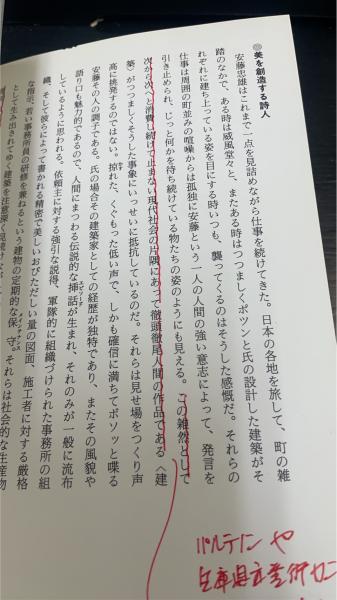 美を創造する詩人
安藤忠雄はこれまで一点を見詰めながら仕事を続けてきた。日本の各地を旅して、町の雑
踏のなかで、ある時は威風堂々と、またある時はつつましくポツンと氏の設計した建築がそ
れぞれに建ち上っている姿を目にする時いつも、襲ってくるのはそうした感慨だ。それらの
仕事は周囲の町並みの喧噪からは孤独に安藤という一人の人間の強い意志によって、発言を
引き止められ、じっと何かを待ち続けている物たちの姿のようにも見える。この雑然として
次から次へと消費し続けて止まない現代社会の片隅にあって徹頭徹尾人間の作品である〈建
築〉がつつましくそうした事象にいっせいに抵抗しているのだ。それらは見せ場をつくり声
高に挑発するのではない。掠れた、くぐもった低い声で、しかも確信に満ちてボソッと喋る
安藤その人の調子である。氏の場合その建築家としての経歴が独特であり、またその風貌や
語り口も魅力的であるので、人間にまつわる伝説的な挿話が生まれ、それのみが一般に流布
しているように思われる。依頼主に対する強引な説得、軍隊的に組織づけられた事務所の組
織、そして彼らによって書かれる精密で美しいおびただしい量の図面、施工者に対する厳格
な指示、若い事務所員の研修を兼ねるという建物の定期的な保守。それらは社会的な生産物
として生み出されてゆく建築を注意深く見
パルテノンや
兵庫県立芸術セン